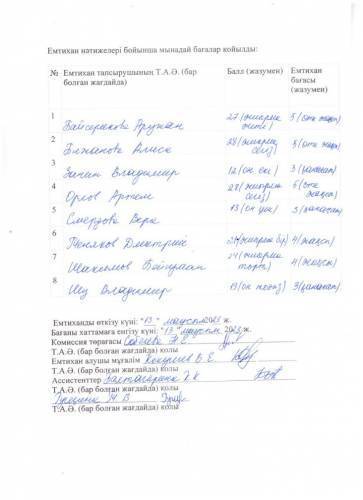 Емтихан нәтижелері бойынша мынадай бағалар қойылды:
№ Емтихан тапсырушының Т.А.Ә. (бар болған жағдайда) Балл (жазумен) Емтихан бағасы (жазумен)
1 Байсеркова Аружан 27 (жиырма жеті) 5 (өте жақсы)
2 Блжанова Алиса 28 (жиырма сегіз) 5 (өте жақсы)
3 Владимир 12 (он екі) 3 (қанағат)
4 Орлов Артем 28 (жиырма сегіз) 5 (өте жақсы)
5 Смердова Вера 13 (он үш) 3 (қанағат)
6 Пеняков Дмитрий 21 (жиырма бір) 4 (жақсы)
7 Шакимов 24 (жиырма төрт) 4 (жақсы)
8 Владимир 19 (он тоғыз) 3 (қанағат)
Емтиханды өткізу күні: "13" маусым 2023 ж.
Бағаны хаттамаға енгізу күні: "13" маусым 2023 ж.
Комиссия төрағасы
Т.А.Ә. (бар болған жағдайда) қолы
Емтихан алушы мұғалім В.Е.
Т.А.Ә. (бар болған жағдайда) қолы
Ассистенттер
Т.А.Ә. (бар болған жағдайда) қолы
М.В
Т.А.Ә. (бар болған жағдайда) қолы